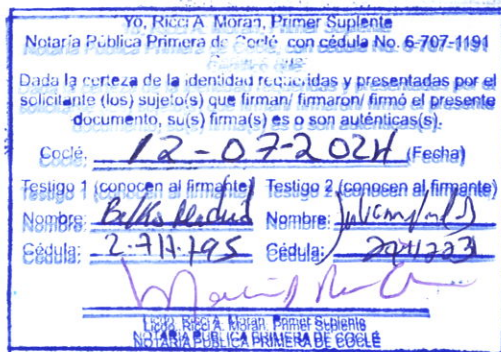 Yo, Ricci A. Moran, Primer Suplente
Notaría Pública Primera de Coclé, con cédula No. 6-707-1191
Dada la certeza de la identidad requeridas y presentadas por el
solicitante (los) sujeto(s) que firman/ firmaron/ firmó el presente
documento, su(s) firma(s) es o son auténticas(s).
Coclé, 12-07-2024 (Fecha)
Testigo 1 (conocen al firmante) Testigo 2 (conocen al firmante)
Nombre: Nombre:
Cédula: 2-711-195 Cédula:
Licdo. Ricci A. Moran, Primer Suplente
NOTARÍA PÚBLICA PRIMERA DE COCLÉ